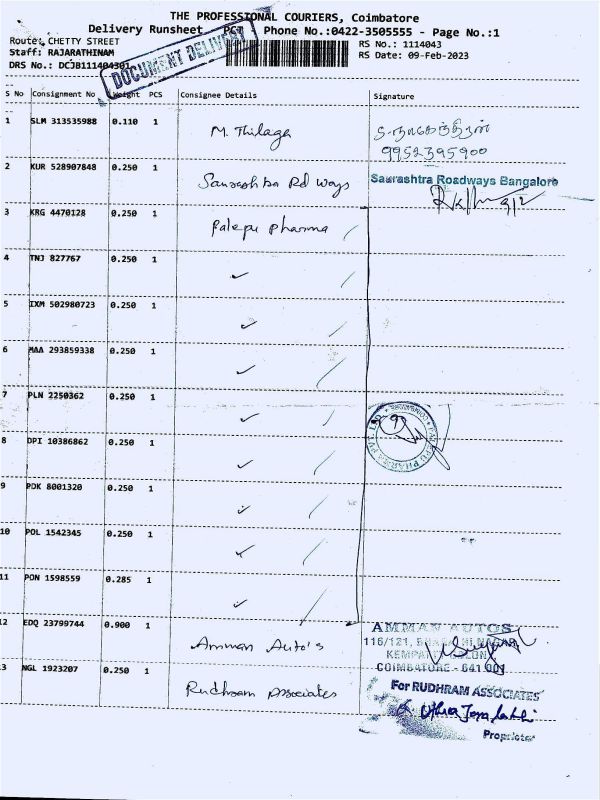 THE PROFESSIONAL COURIERS, Coimbatore
Delivery Runsheet PCT Phone No.:0422-3505555 - Page No.:1
Route: CHETTY STREET RS No.: 1114043
Staff: RAJARATHINAM RS Date: 09-Feb-2023
DRS No.: DCJB111404301
DOCUMENT DELIVERY
S No Consignment No Weight PCS Consignee Details Signature
1 SLM 313535988 0.110 1 M. Thilaga
9952395900
2 KUR 528907848 0.250 1 Saurashtra Rd Ways Saurashtra Roadways Bangalore
3 KRG 4470128 0.250 1 Palepu Pharma
4 TNJ 827767 0.250 1 ✓
5 IXM 502980723 0.250 1 ✓
6 MAA 293859338 0.250 1 ✓
7 PLN 2250362 0.250 1 ✓
8 DPI 10386862 0.250 1 ✓
PALEPU PHARMA PVT LTD
9 PDK 8001320 0.250 1 ✓
10 POL 1542345 0.250 1 ✓
11 PON 1598559 0.285 1 ✓
12 EDQ 23799744 0.900 1 Amman Auto's AMMAN AUTOS
116/121,
COIMBATORE - 641 001
13 NGL 1923207 0.250 1 Rudhram Associates For RUDHRAM ASSOCIATES
Proprietor